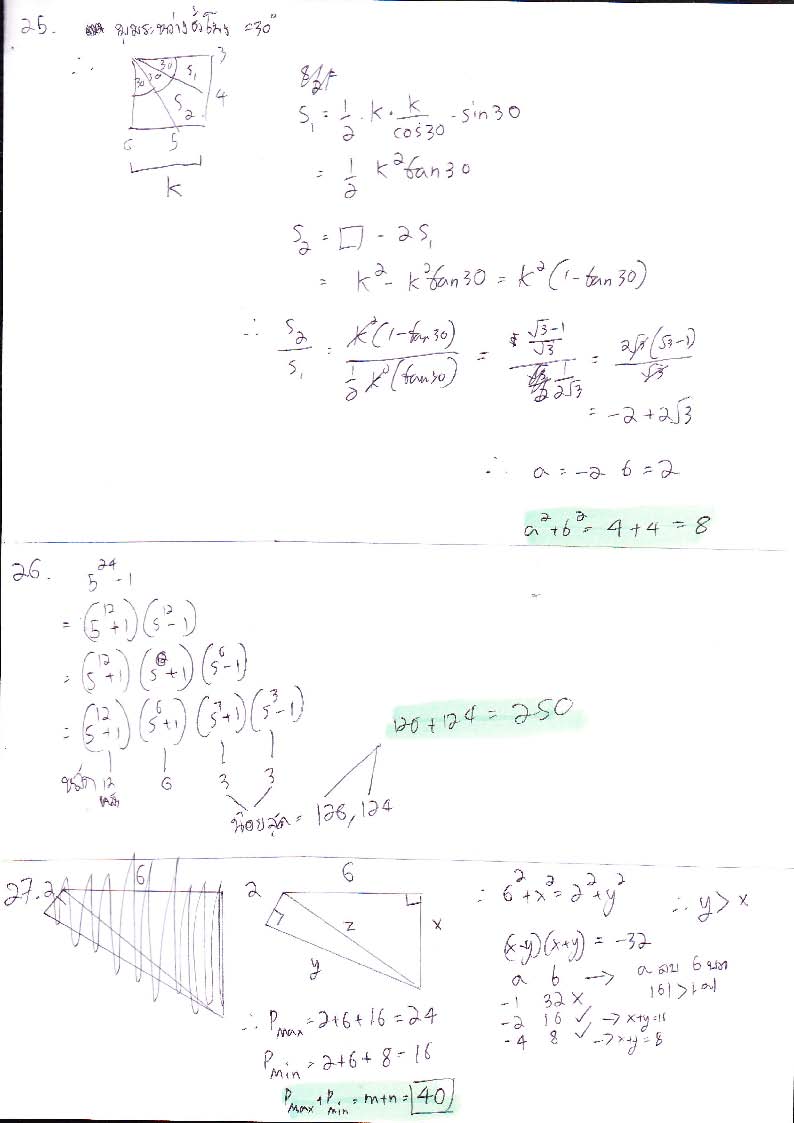 25. มุมระหว่างชั่วโมง = 30°
∴
30 S₁ 3
30 30 S₂ 4
6 5
k
S₁ = 1/2 · k · k/cos30 · sin30
= 1/2 k² tan30
S₂ = □ - 2S₁
= k² - k² tan30 = k² (1 - tan30)
∴ S₂/S₁ = k² (1 - tan30) / 1/2 k² (tan30) = (√3-1)/√3 / 1/2√3 = 2√3 (√3-1)/√3
= -2 + 2√3
∴ a = -2 b = 2
a² + b² = 4 + 4 = 8
26. 5²⁴ - 1
= (5¹² + 1) (5¹² - 1)
= (5¹² + 1) (5⁶ + 1) (5⁶ - 1)
= (5¹² + 1) (5⁶ + 1) (5³ + 1) (5³ - 1)
126 + 124 = 250
12 6 3 3
หลัก
น้อยสุด = 126, 124
27. 2 6
2 6
x
z
y
∴ 6² + x² = 2² + y² ∴ y > x
(x-y)(x+y) = -32
a b → a ลบ b บวก
|b| > |a|
-1 32 ×
-2 16 ✓ → x+y=16
-4 8 ✓ → x+y=8
∴ Pmax = 2 + 6 + 16 = 24
Pmin = 2 + 6 + 8 = 16
Pmax + Pmin = m+n = 40